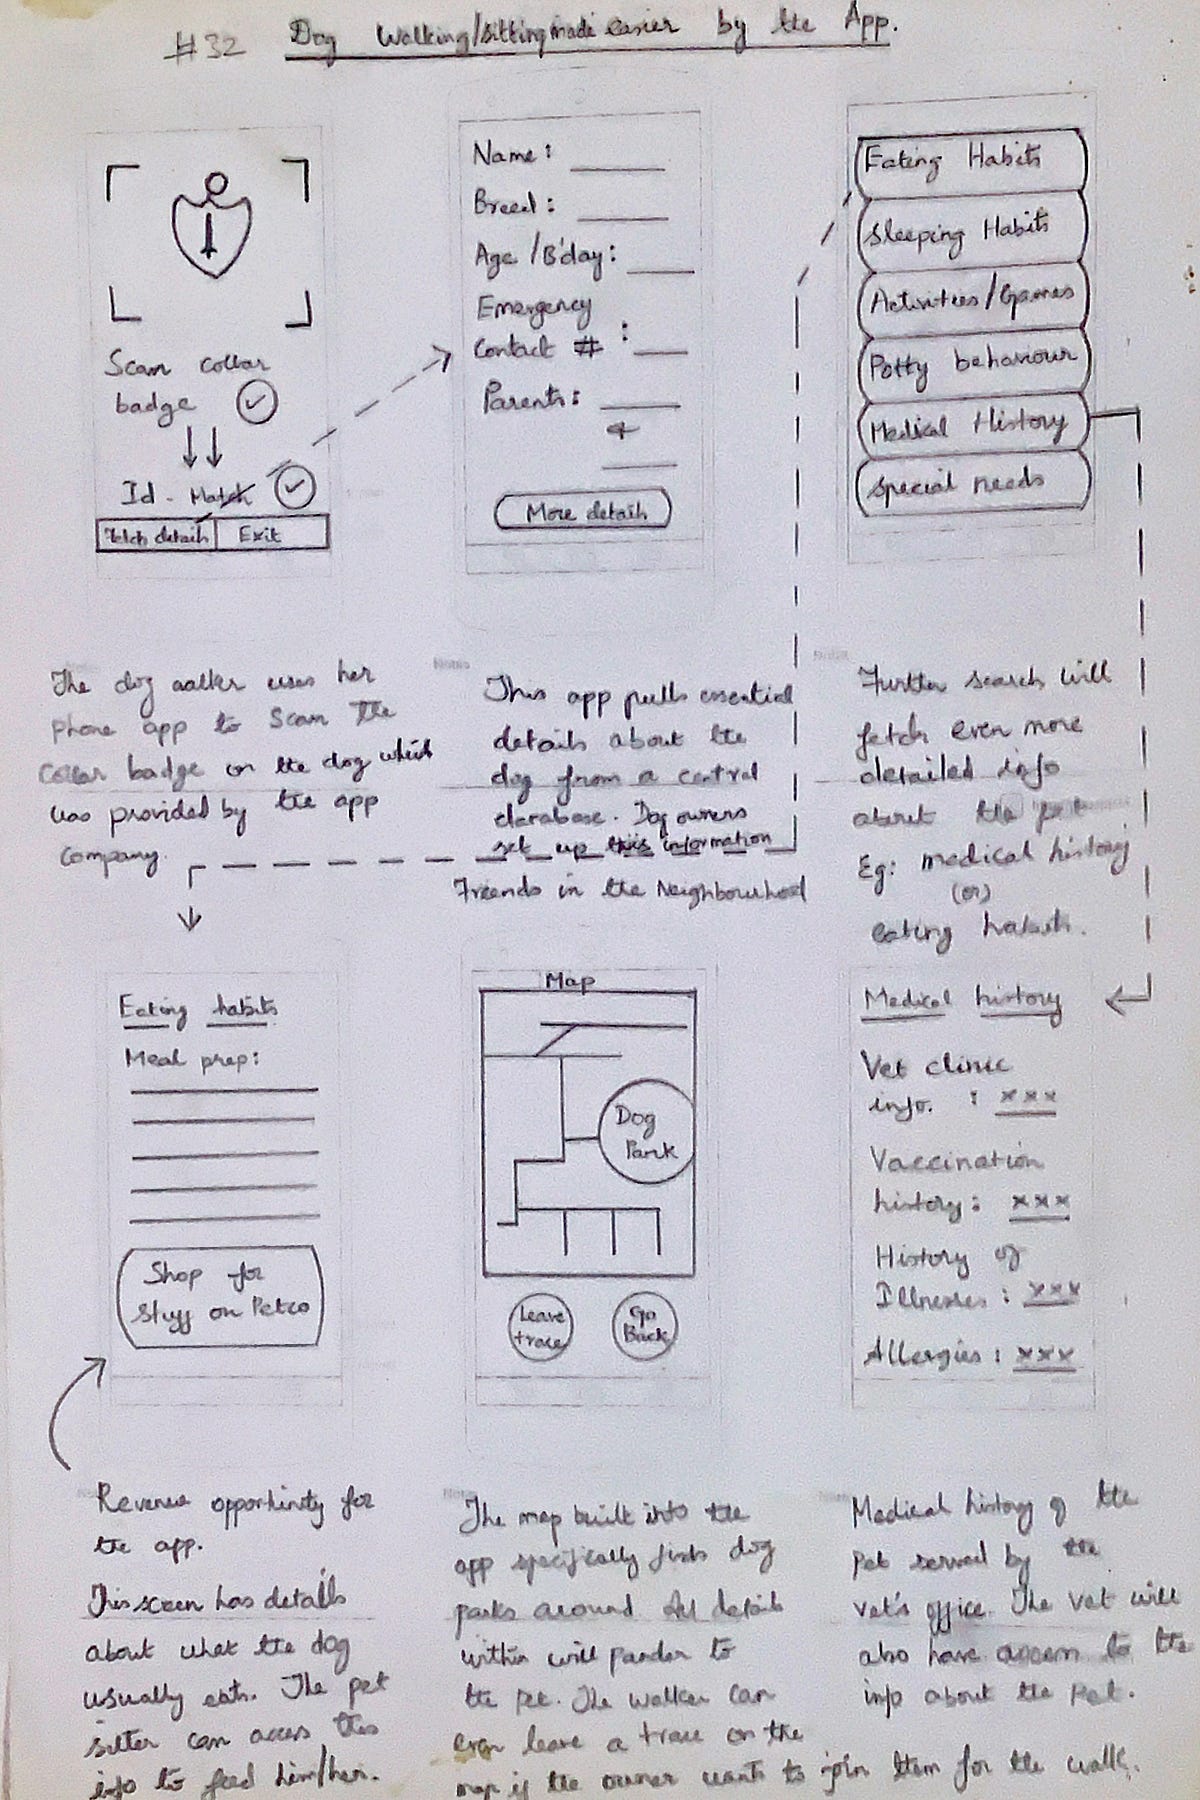 #32 Dog Walking/sitting made easier by the App.
Scan collar
badge
Id - Match
Fetch details
Exit
Name:
Breed:
Age /B'day:
Emergency
Contact # :
Parents:
&
More details
Eating Habits
Sleeping Habits
Activities/Games
Potty behaviour
Medical History
Special needs
The dog walker uses her
phone app to Scan the
collar badge on the dog which
was provided by the app
company.
This app pulls essential
details about the
dog from a central
darabase. Dog owners
set up this information
Further search will
fetch even more
detailed info
about the pet
Eg: medical history
(or)
eating habits.
Friends in the Neighbourhood
Eating habits
Meal prep:
Shop for
Stuff on Petco
Map
Dog
Park
Leave
trace
Go
Back
Medical history
Vet clinic
info. : xxx
Vaccination
history: xxx
History of
Illnesses: xxx
Allergies: xxx
Revenue opportunity for
the app.
This screen has details
about what the dog
usually eats. The pet
sitter can access this
info to feed him/her.
The map built into the
app specifically lists dog
parks around. All details
within will pander to
the pet. The walker can
even leave a trace on the
map if the owner wants to join them for the walk.
Medical history of the
Pet served by the
vet's office. The vet will
also have access to the
info about the Pet.